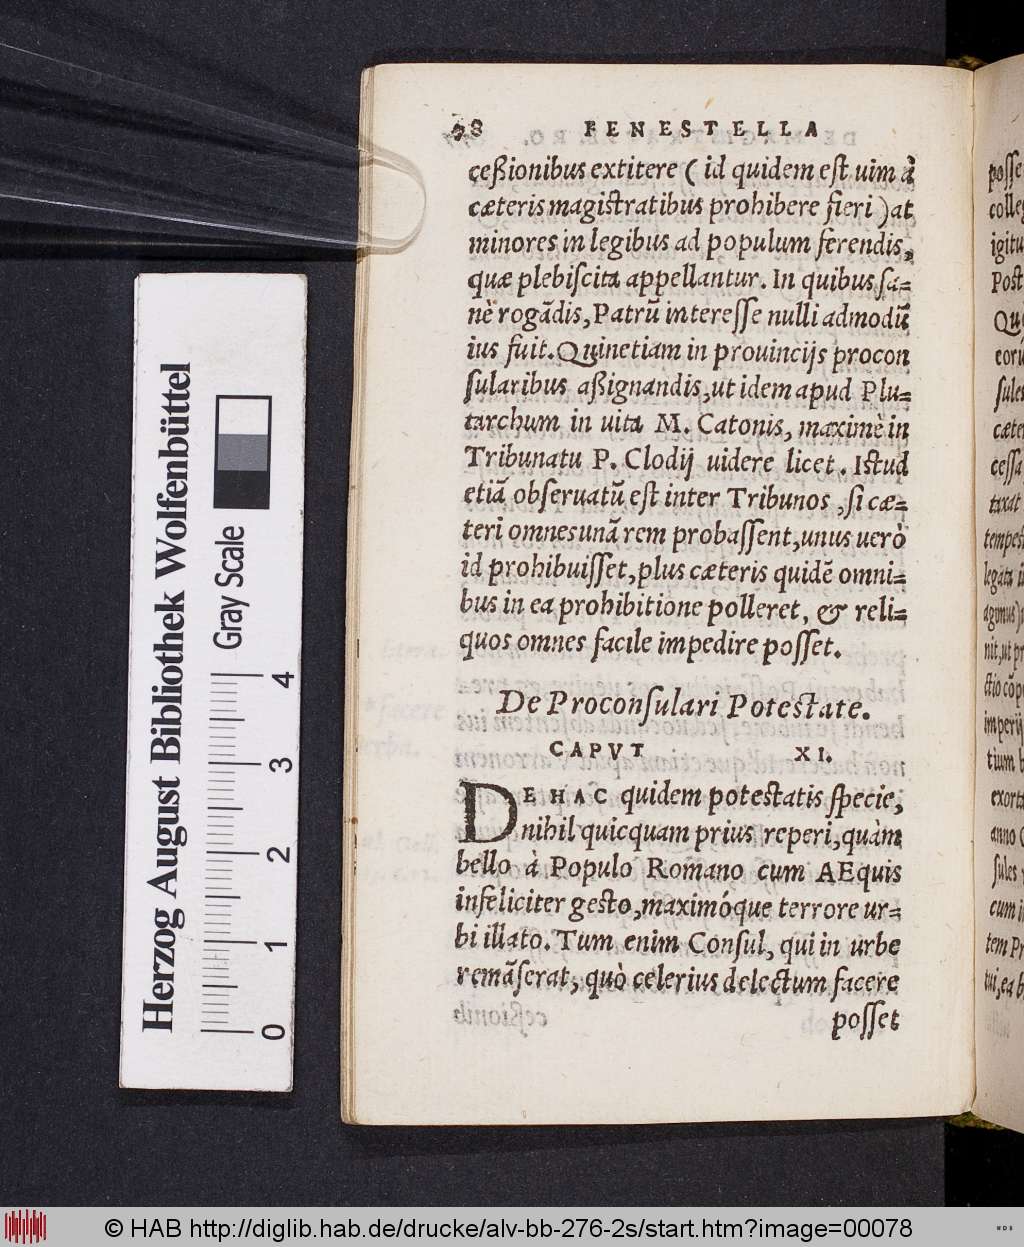 78 FENESTELLA
ceßionibus extitere ( id quidem est uim à
cæteris magistratibus prohibere fieri ) at
minores in legibus ad populum ferendis,
quæ plebiscita appellantur. In quibus sa=
nè rogādis, Patrū interesse nulli admodū
ius fuit. Quinetiam in prouincijs procon
sularibus aßignandis, ut idem apud Plu=
tarchum in uita M. Catonis, maximè in
Tribunatu P. Clodij uidere licet. Istud
etiā obseruatū est inter Tribunos, si cæ=
teri omnes unā rem probassent, unus uerò
id prohibuisset, plus cæteris quidē omni=
bus in ea prohibitione polleret, & reli=
quos omnes facile impedire posset.
De Proconsulari Potestate.
CAPVT XI.
DE HAC quidem potestatis specie,
nihil quicquam prius reperi, quàm
bello à Populo Romano cum AEquis
infeliciter gesto, maximóque terrore ur=
bi illato. Tum enim Consul, qui in urbe
remāserat, quò celerius delectum facere
posset
posse
igitu
Post
eorū
sules
cæte
cessa
taxat
tempest
legata i
agimus)
nit, ut pr
ctio cōp
imperij
tium b
exorta
anno
sules
cum i
tem Pr
tui, ea b
Herzog August Bibliothek Wolfenbüttel
Gray Scale
0 1 2 3 4
© HAB http://diglib.hab.de/drucke/alv-bb-276-2s/start.htm?image=00078
WDB